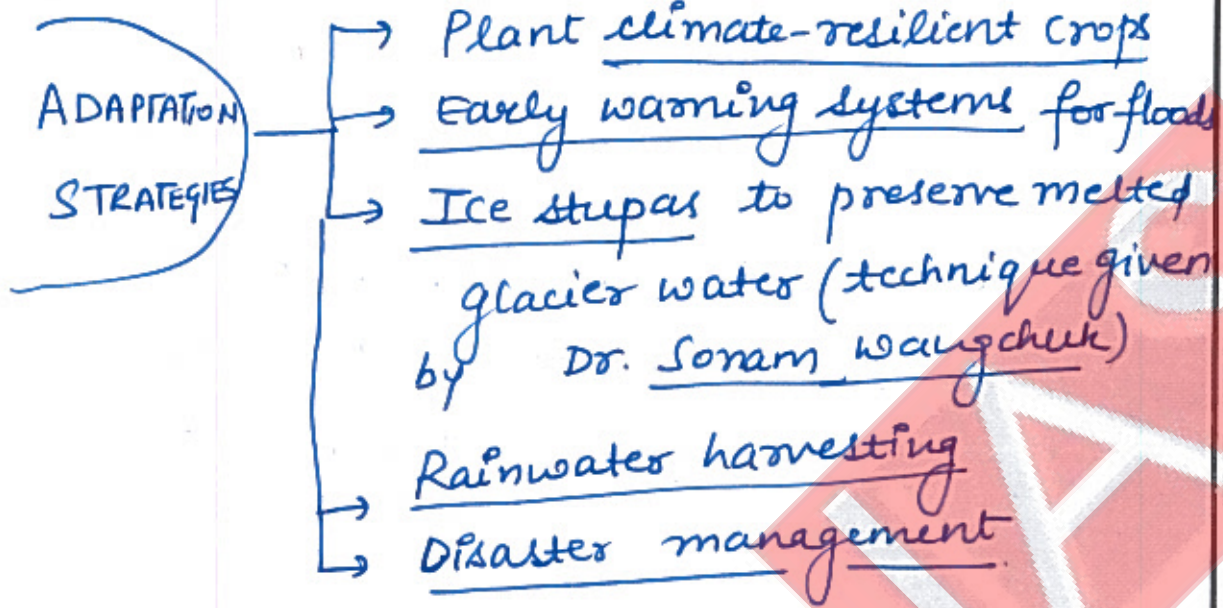 ADAPTATION
STRATEGIES
→ Plant climate-resilient crops
→ Early warning systems for floods
→ Ice stupas to preserve melted
glacier water (technique given
by Dr. Sonam Wangchuk)
→ Rainwater harvesting
→ Disaster management
IAS